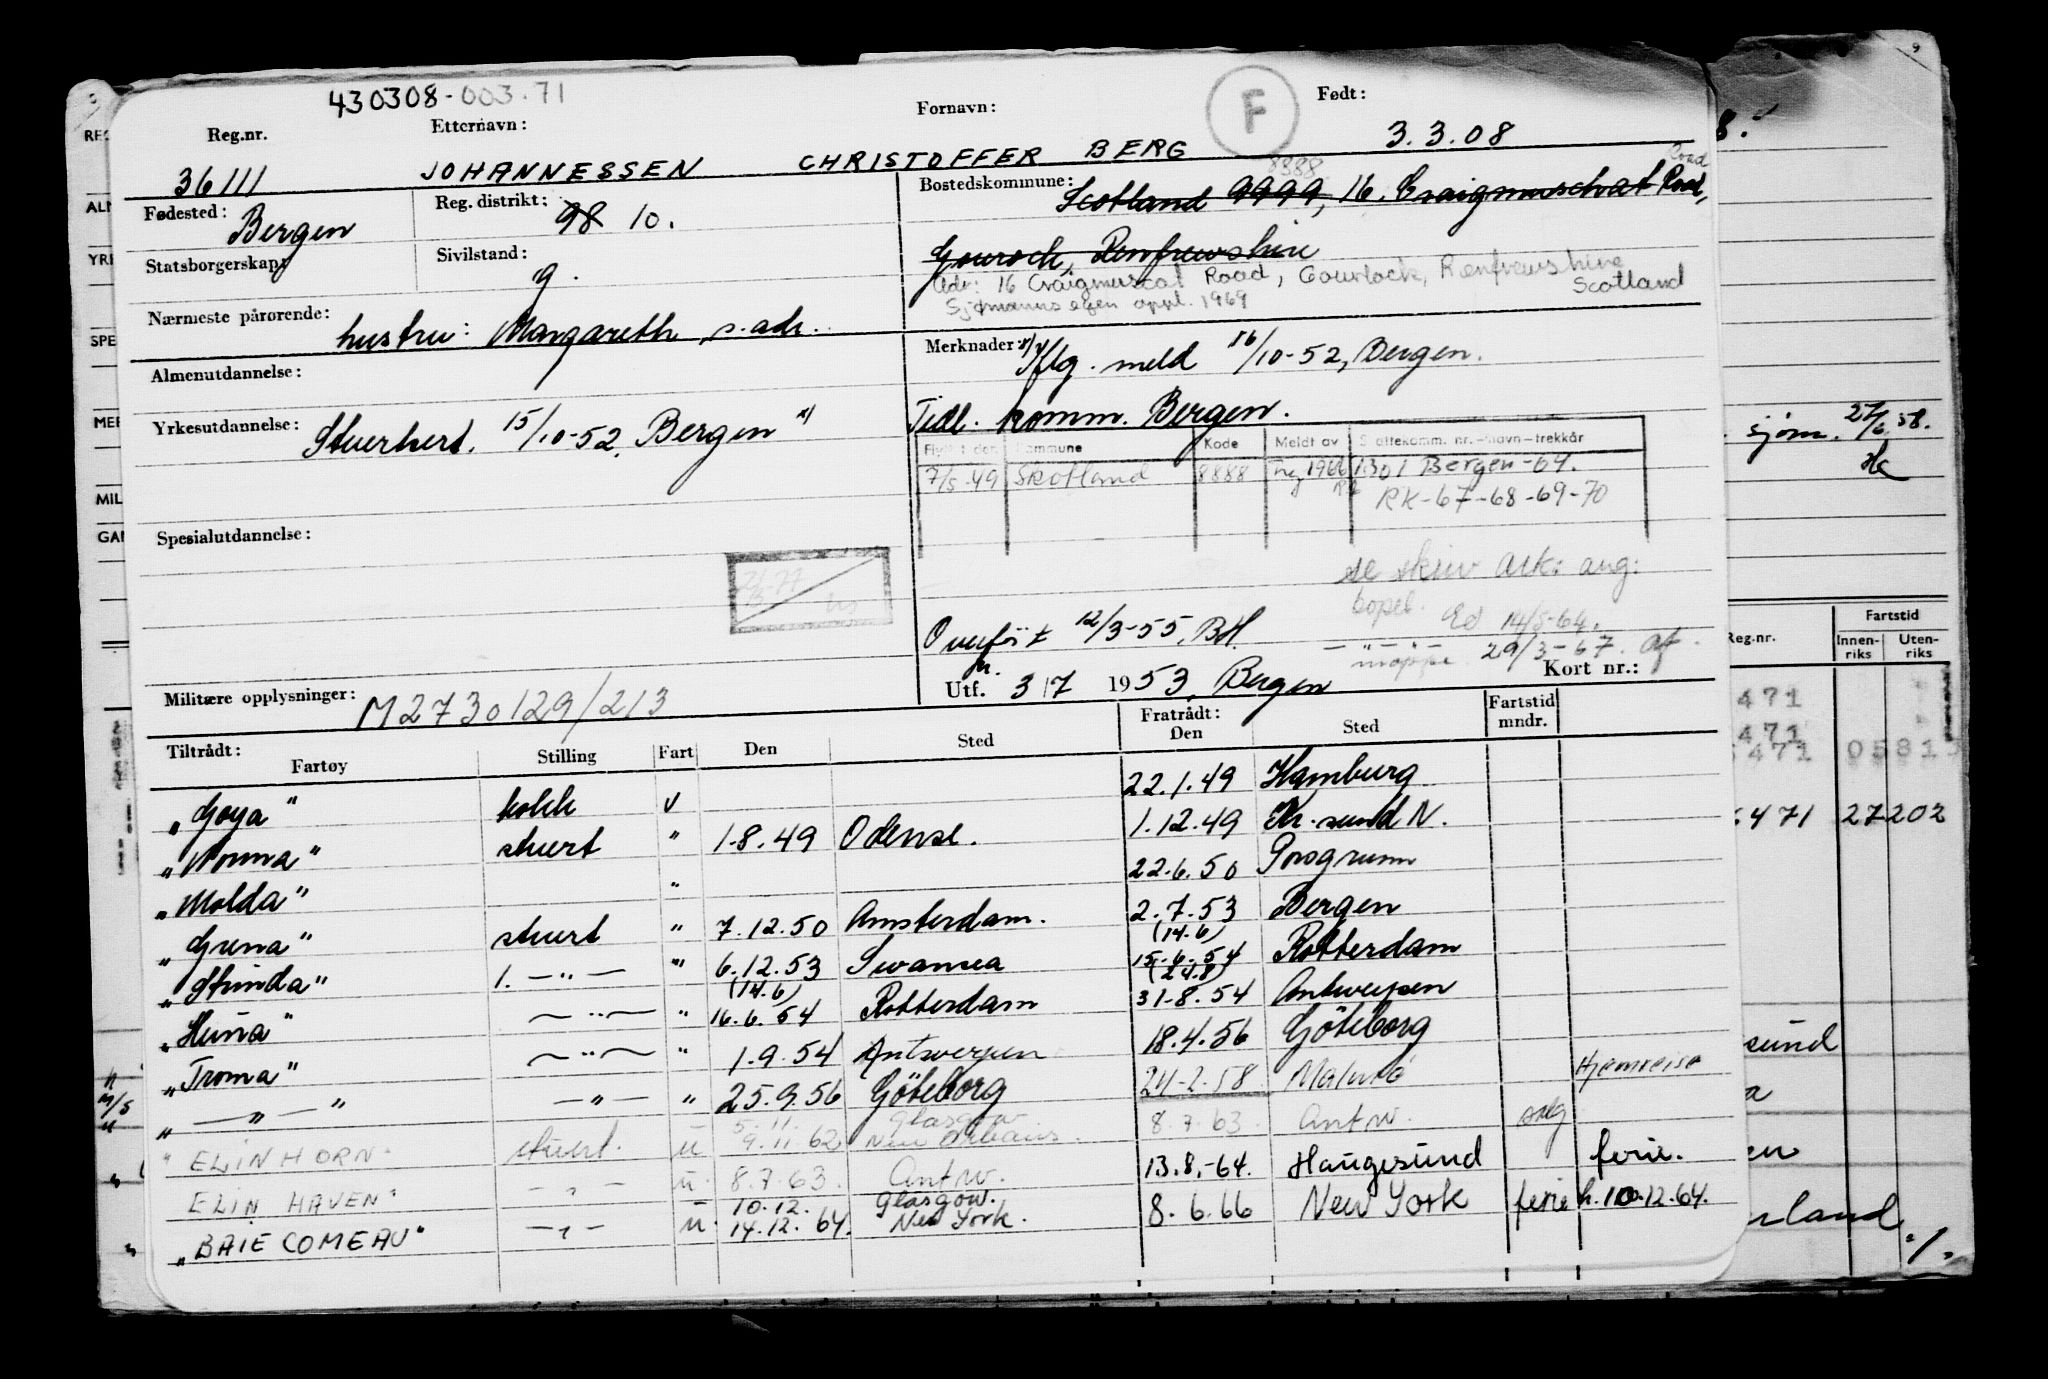 430308-003.71
Reg.nr. Etternavn: Fornavn: F Født:
36111 JOHANNESSEN CHRISTOFFER BERG 3.3.08
Fødested: Bergen Reg. distrikt: 98 10.
Bostedskommune: 8888 Road
Scotland 9999, 16. Craigmuschat Road,
Gourock, Renfrewshire
Statsborgerskap: Sivilstand: g.
Adr: 16 Craigmuscat Road, Gourlock, Renfrewshire
Scotland
Sjømanns egen oppl. 1969
Nærmeste pårørende: hustru: Margareth, s. adr.
Merknader: Iflg. meld 16/10-52, Bergen.
Almenutdannelse:
Tidl. komm. Bergen.
Yrkesutdannelse: Stuerthert. 15/10-52, Bergen
Flyttet den Kommune Kode Meldt av Skattekomm. nr.-navn-trekkår
7/5-49 Skotland 8888 1966 1301 Bergen-64.
RK-67-68-69-70
Spesialutdannelse:
se skriv ark: ang:
bopel. Ed 14/5-64.
Overført 12/3-55, BH.
mappe 29/3-67. af
Utf. 3/7 1953, Bergen Kort nr.:
Militære opplysninger: M2730129/213
Tiltrådt: Fratrådt: Fartstid
Fartøy Stilling Fart Den Sted Den Sted mndr.
"Goya" kokk v 22.1.49 Hamburg
"Norma" stuert " 1.8.49 Odense. 1.12.49 Kr.sund N.
"Molda" " 22.6.50 Porsgrunn
"Grena" stuert " 7.12.50 Amsterdam. 2.7.53 Bergen
(14.6)
"Strinda" 1. —"— " 6.12.53 Swansea 15.6.54 Rotterdam
(14.6) (24.8)
"Huna" —"— " 16.6.54 Rotterdam 31.8.54 Antwerpen
"Troma" —"— " 1.9.54 Antwerpen 18.4.56 Göteborg
"—"—" —"— " 25.9.56 Göteborg 24-2.58 Malmö Hjemreise
5.11. Glasgow
"ELIN HORN" stuert. u 9.11.62 New Orleans. 8.7.63. Antw.
ELIN HAVEN" —"— u. 8.7.63. Antw. 13.8.-64. Haugesund ferie.
10.12. Glasgow.
"BAIE COMEAU" —"— u. 14.12.64. New York. 8.6.66 New York ferie h. 10.12.64.
8.
sjøm. 27/6.58.
Fartstid
Reg.nr. Innen- riks Uten- riks
471
471
471 0581
471 27 202
sund
land
REG
ALM
YRK
SPE
MER
MIL
GAN